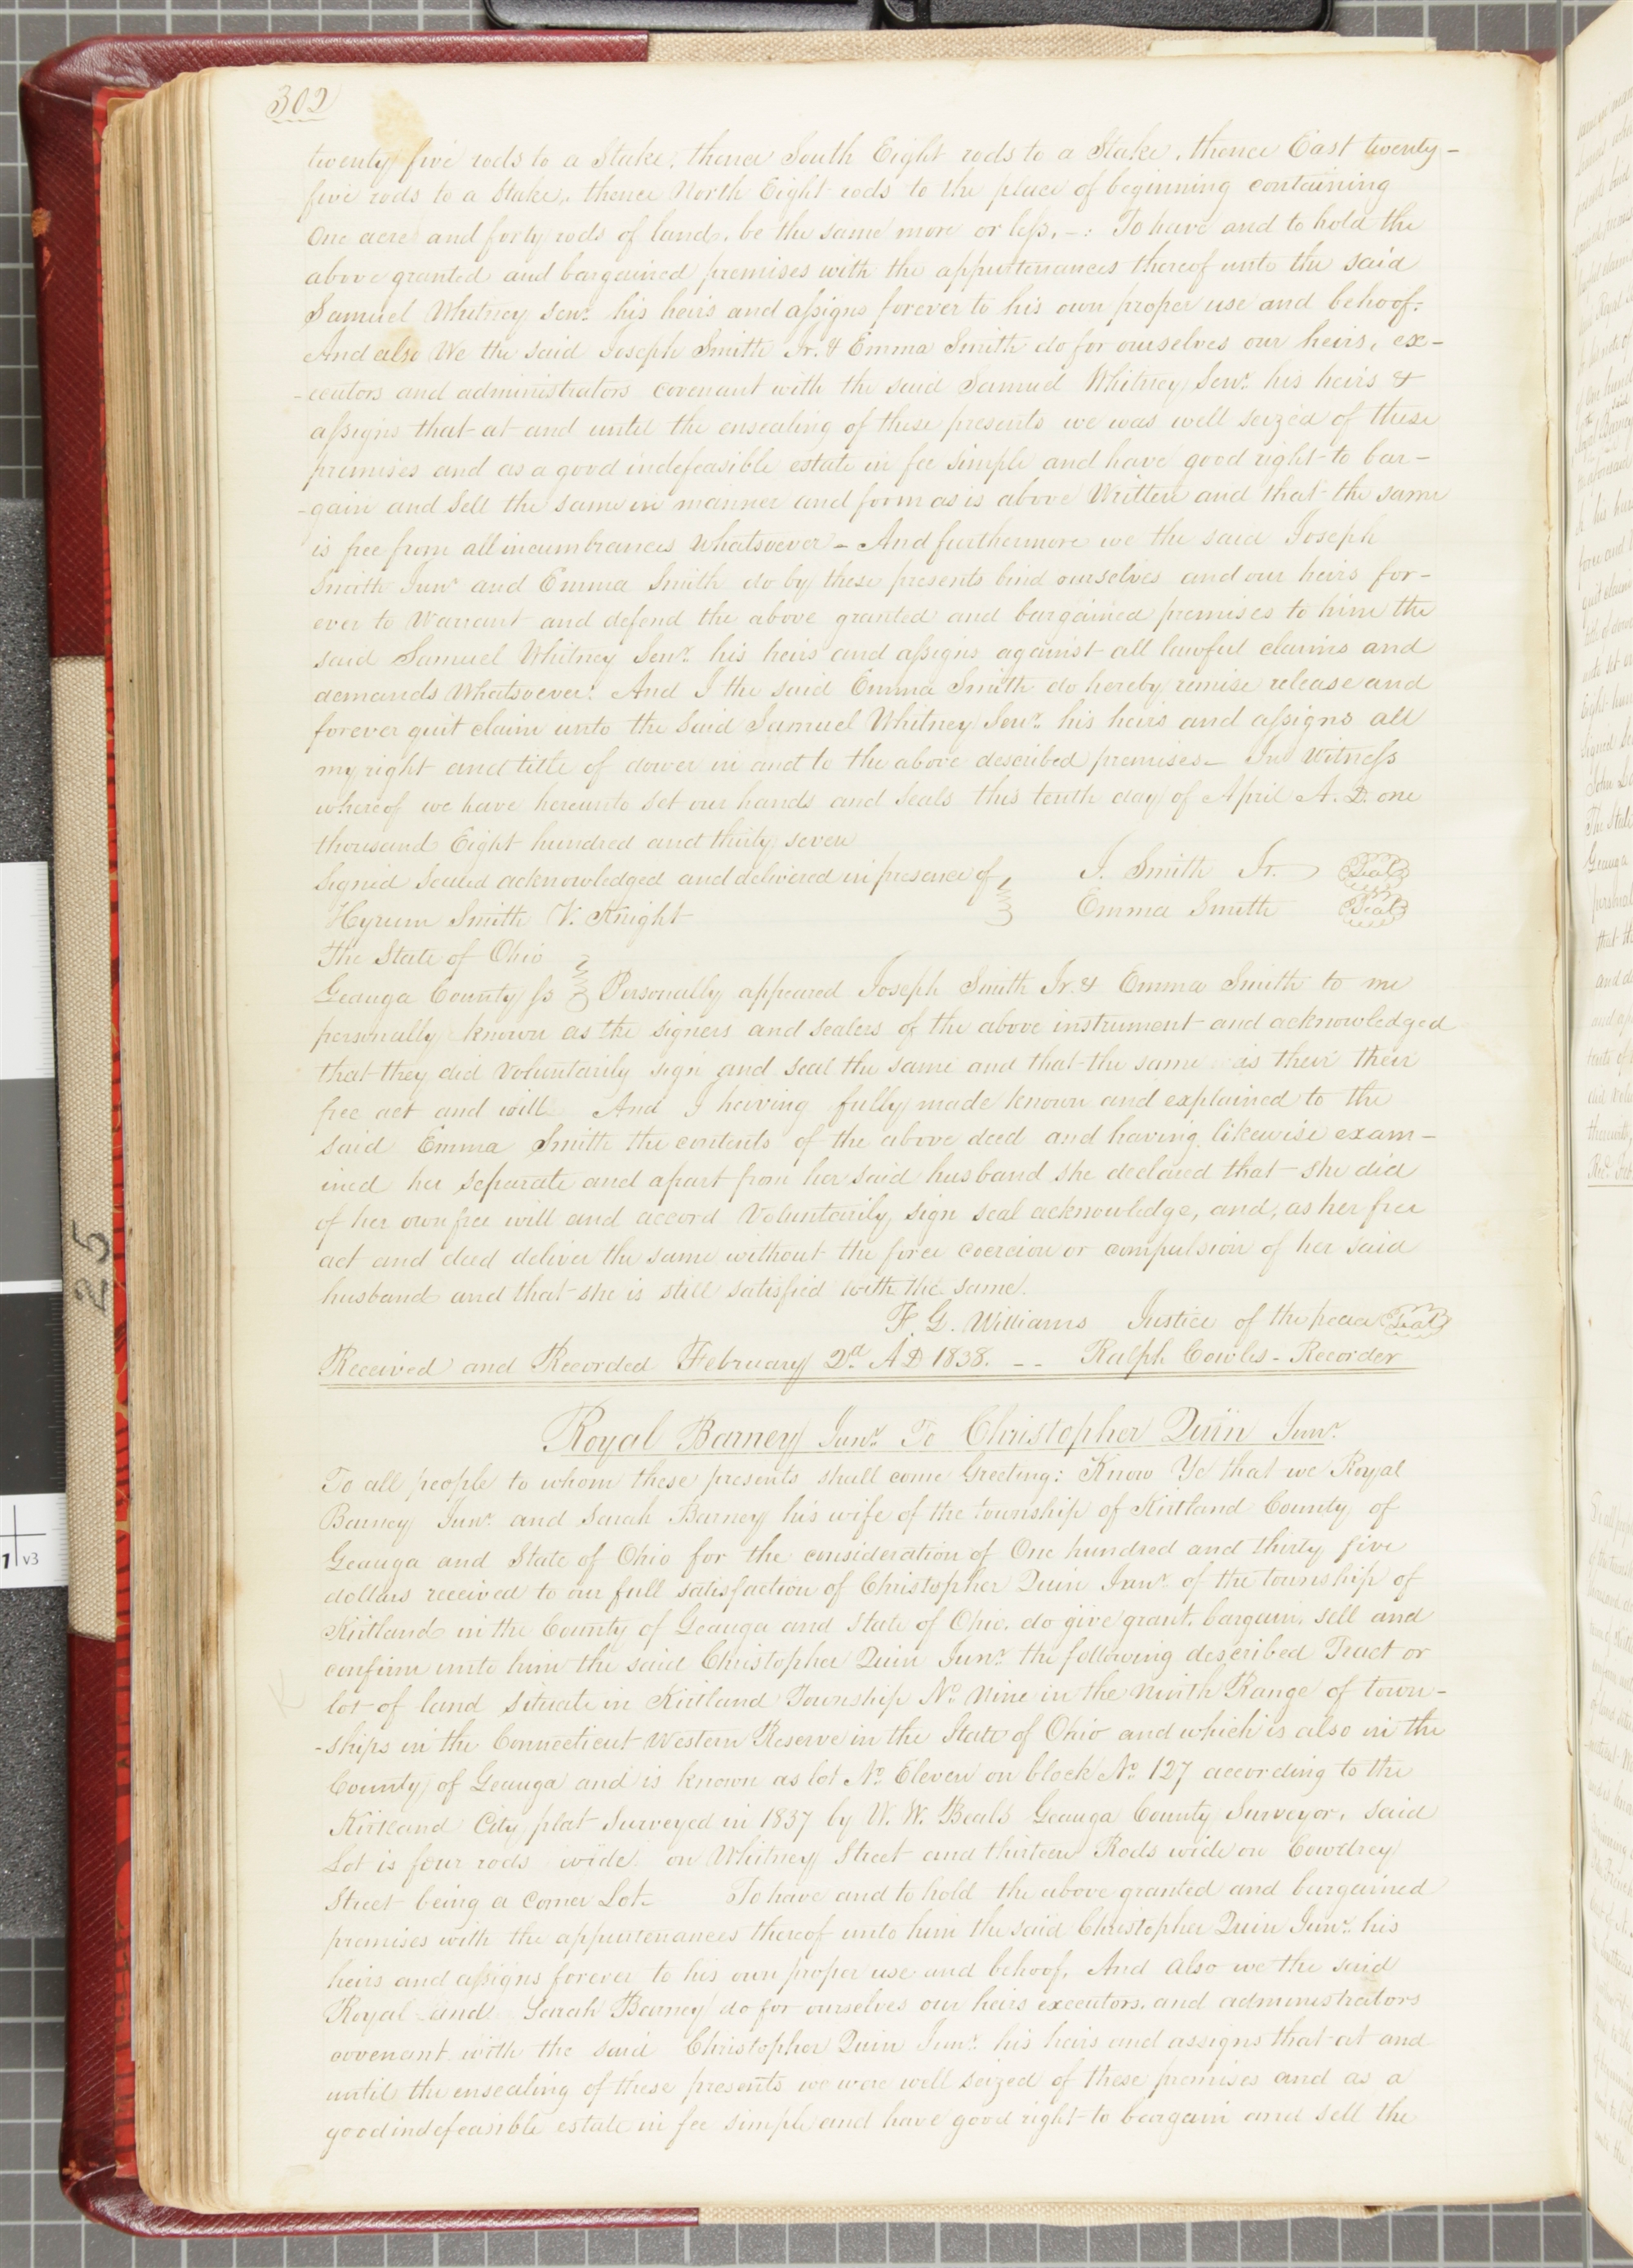 302
twenty five rods to a Stake, thence South Eight rods to a Stake, thence East twenty-
five rods to a Stake, thence North Eight rods to the place of beginning containing
One acre and forty rods of land, be the same more or less, -: To have and to hold the
above granted and bargained premises with the appurtenances thereof unto the said
Samuel Whitney Senr. his heirs and assigns forever to his own proper use and behoof.
And also We the said Joseph Smith Jr. & Emma Smith do for ourselves our heirs, ex-
-ecutors and administrators covenant with the said Samuel Whitney Senr. his heirs &
assigns that at and until the ensealing of these presents we was well seized of these
premises and as a good indefeasible estate in fee simple and have good right to bar-
-gain and Sell the same in manner and form as is above Written and that the same
is free from all incumbrances Whatsoever - And furthermore we the said Joseph
Smith Junr and Emma Smith do by these presents bind ourselves and our heirs for-
ever to Warrant and defend the above granted and bargained premises to him the
said Samuel Whitney Senr. his heirs and assigns against all lawful claims and
demands Whatsoever: And I the said Emma Smith do hereby remise release and
forever quit claim unto the Said Samuel Whitney Senr. his heirs and assigns all
my right and title of dower in and to the above described premises - In Witness
whereof we have hereunto Set our hands and Seals this tenth day of April A.D. one
thousand Eight hundred and thirty seven
Signed Sealed acknowledged and delivered in presence of J. Smith Jr. Seal
Hyrum Smith V. Knight Emma Smith Seal
The State of Ohio
Geauga County ss Personally appeared Joseph Smith Jr. & Emma Smith to me
personally known as the signers and sealers of the above instrument and acknowledged
that they did Voluntarily sign and seal the same and that the same is their their
free act and will And I having fully made known and explained to the
said Emma Smith the contents of the above deed and having likewise exam-
ined her separate and apart from her said husband she declared that she did
of her own free will and accord Voluntarily sign seal acknowledge, and, as her free
act and deed deliver the same without the force coercion or compulsion of her said
husband and that she is still satisfied with the same.
F. G. Williams Justice of the peace Seal
Received and Recorded February 2d. A D 1838. -- Ralph Cowles - Recorder
Royal Barney Junr. To Christopher Quin Junr.
To all people to whom these presents shall come Greeting: Know Ye that we Royal
Barney Junr. and Sarah Barney his wife of the township of Kirtland County of
Geauga and State of Ohio for the consideration of One hundred and thirty five
dollars received to our full satisfaction of Christopher Quin Junr. of the township of
Kirtland in the County of Geauga and State of Ohio, do give grant, bargain, sell and
confirm unto him the said Christopher Quin Junr. the following described Tract or
lot of land Situate in Kirtland Township No. Nine in the Ninth Range of town-
-ships in the Connecticut Western Reserve in the State of Ohio and which is also in the
County of Geauga and is known as lot No. Eleven on block No. 127 according to the
Kirtland City plat Surveyed in 1837 by W. W. Beals Geauga County Surveyor, said
Lot is four rods wide on Whitney Street and thirteen Rods wide on Cowdrey
Street being a Corner Lot - To have and to hold the above granted and bargained
premises with the appurtenances thereof unto him the said Christopher Quin Junr. his
heirs and assigns forever to his own proper use and behoof. And also we the said
Royal and Sarah Barney do for ourselves our heirs executors, and administrators
covenant with the said Christopher Quin Junr. his heirs and assigns that at and
until the ensealing of these presents we were well seized of these premises and as a
good indefeasible estate in fee simple and have good right to bargain and sell the
25
1 v3